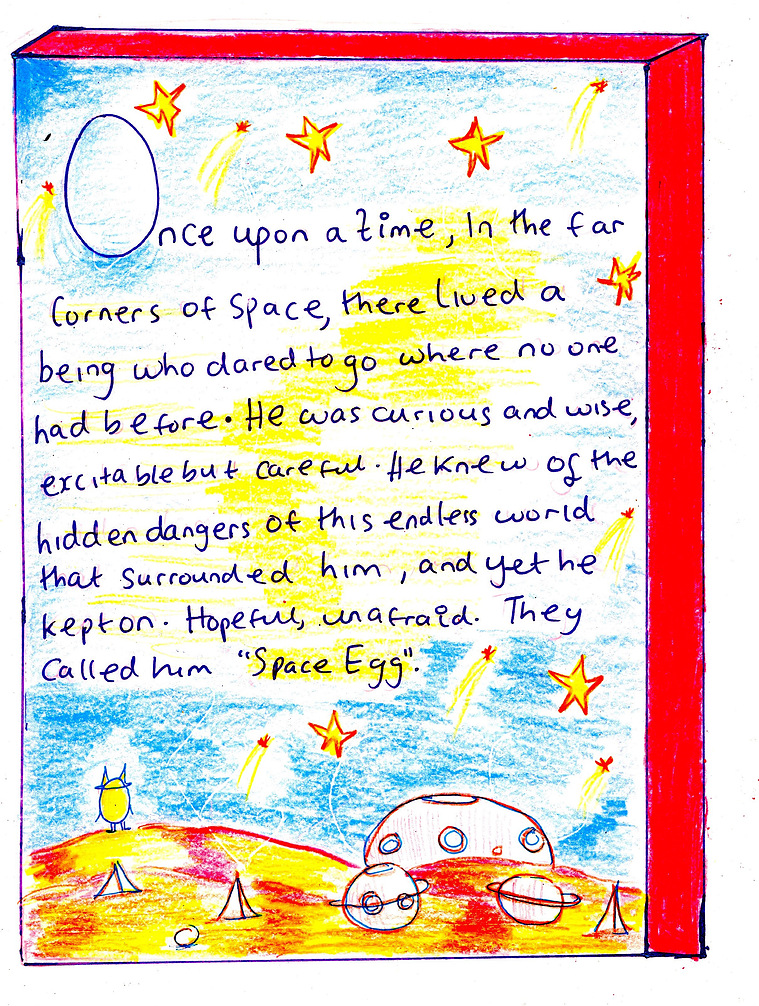 Once upon a time, In the far
Corners of Space, there lived a
being who dared to go where no one
had before. He was curious and wise,
excitable but careful. He knew of the
hidden dangers of this endless world
that surrounded him, and yet he
kept on. Hopeful, unafraid. They
Called him "Space Egg".